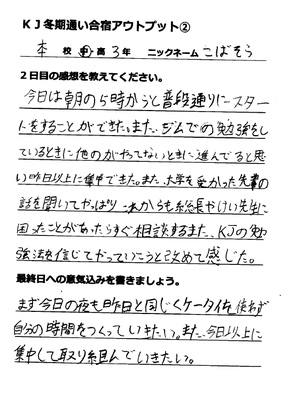 KJ冬期通い合宿アウトプット②
本 校 中 高 3年 ニックネーム こばそう
2日目の感想を教えてください。
今日は朝の5時からと普段通りにスター
トをすることができた。また、ジムでの勉強をし
ているときに他のがやってないときに進んでると思
い昨日以上に集中できた。また、大学を受かった先輩の
話を聞いてやっぱりこれからも総長やけい先生に
困ったことがあったらすぐ相談するまた、KJの勉
強法を信じてやっていこうと改めて感じた。
最終日への意気込みを書きましょう。
まず今日の夜も昨日と同じくケータイを使わず
自分の時間をつくっていきたい。また、今日以上に
集中して取り組んでいきたい。